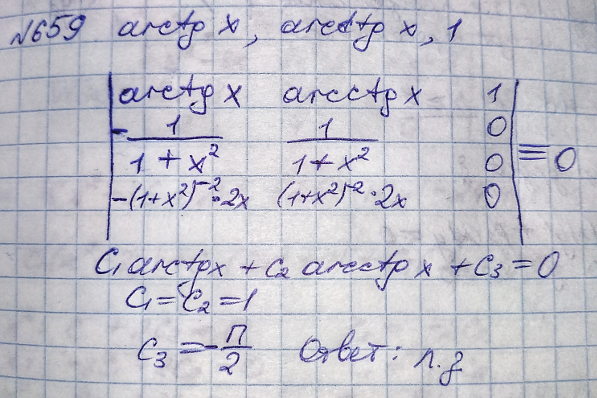 №659 arctg x, arcctg x, 1
| arctg x arcctg x 1 |
| -1/(1+x²) 1/(1+x²) 0 | ≡ 0
| -(1+x²)⁻²·2x (1+x²)⁻²·2x 0 |
C₁ arctg x + C₂ arcctg x + C₃ = 0
C₁ = C₂ = 1
C₃ = -П/2 Ответ: л.з